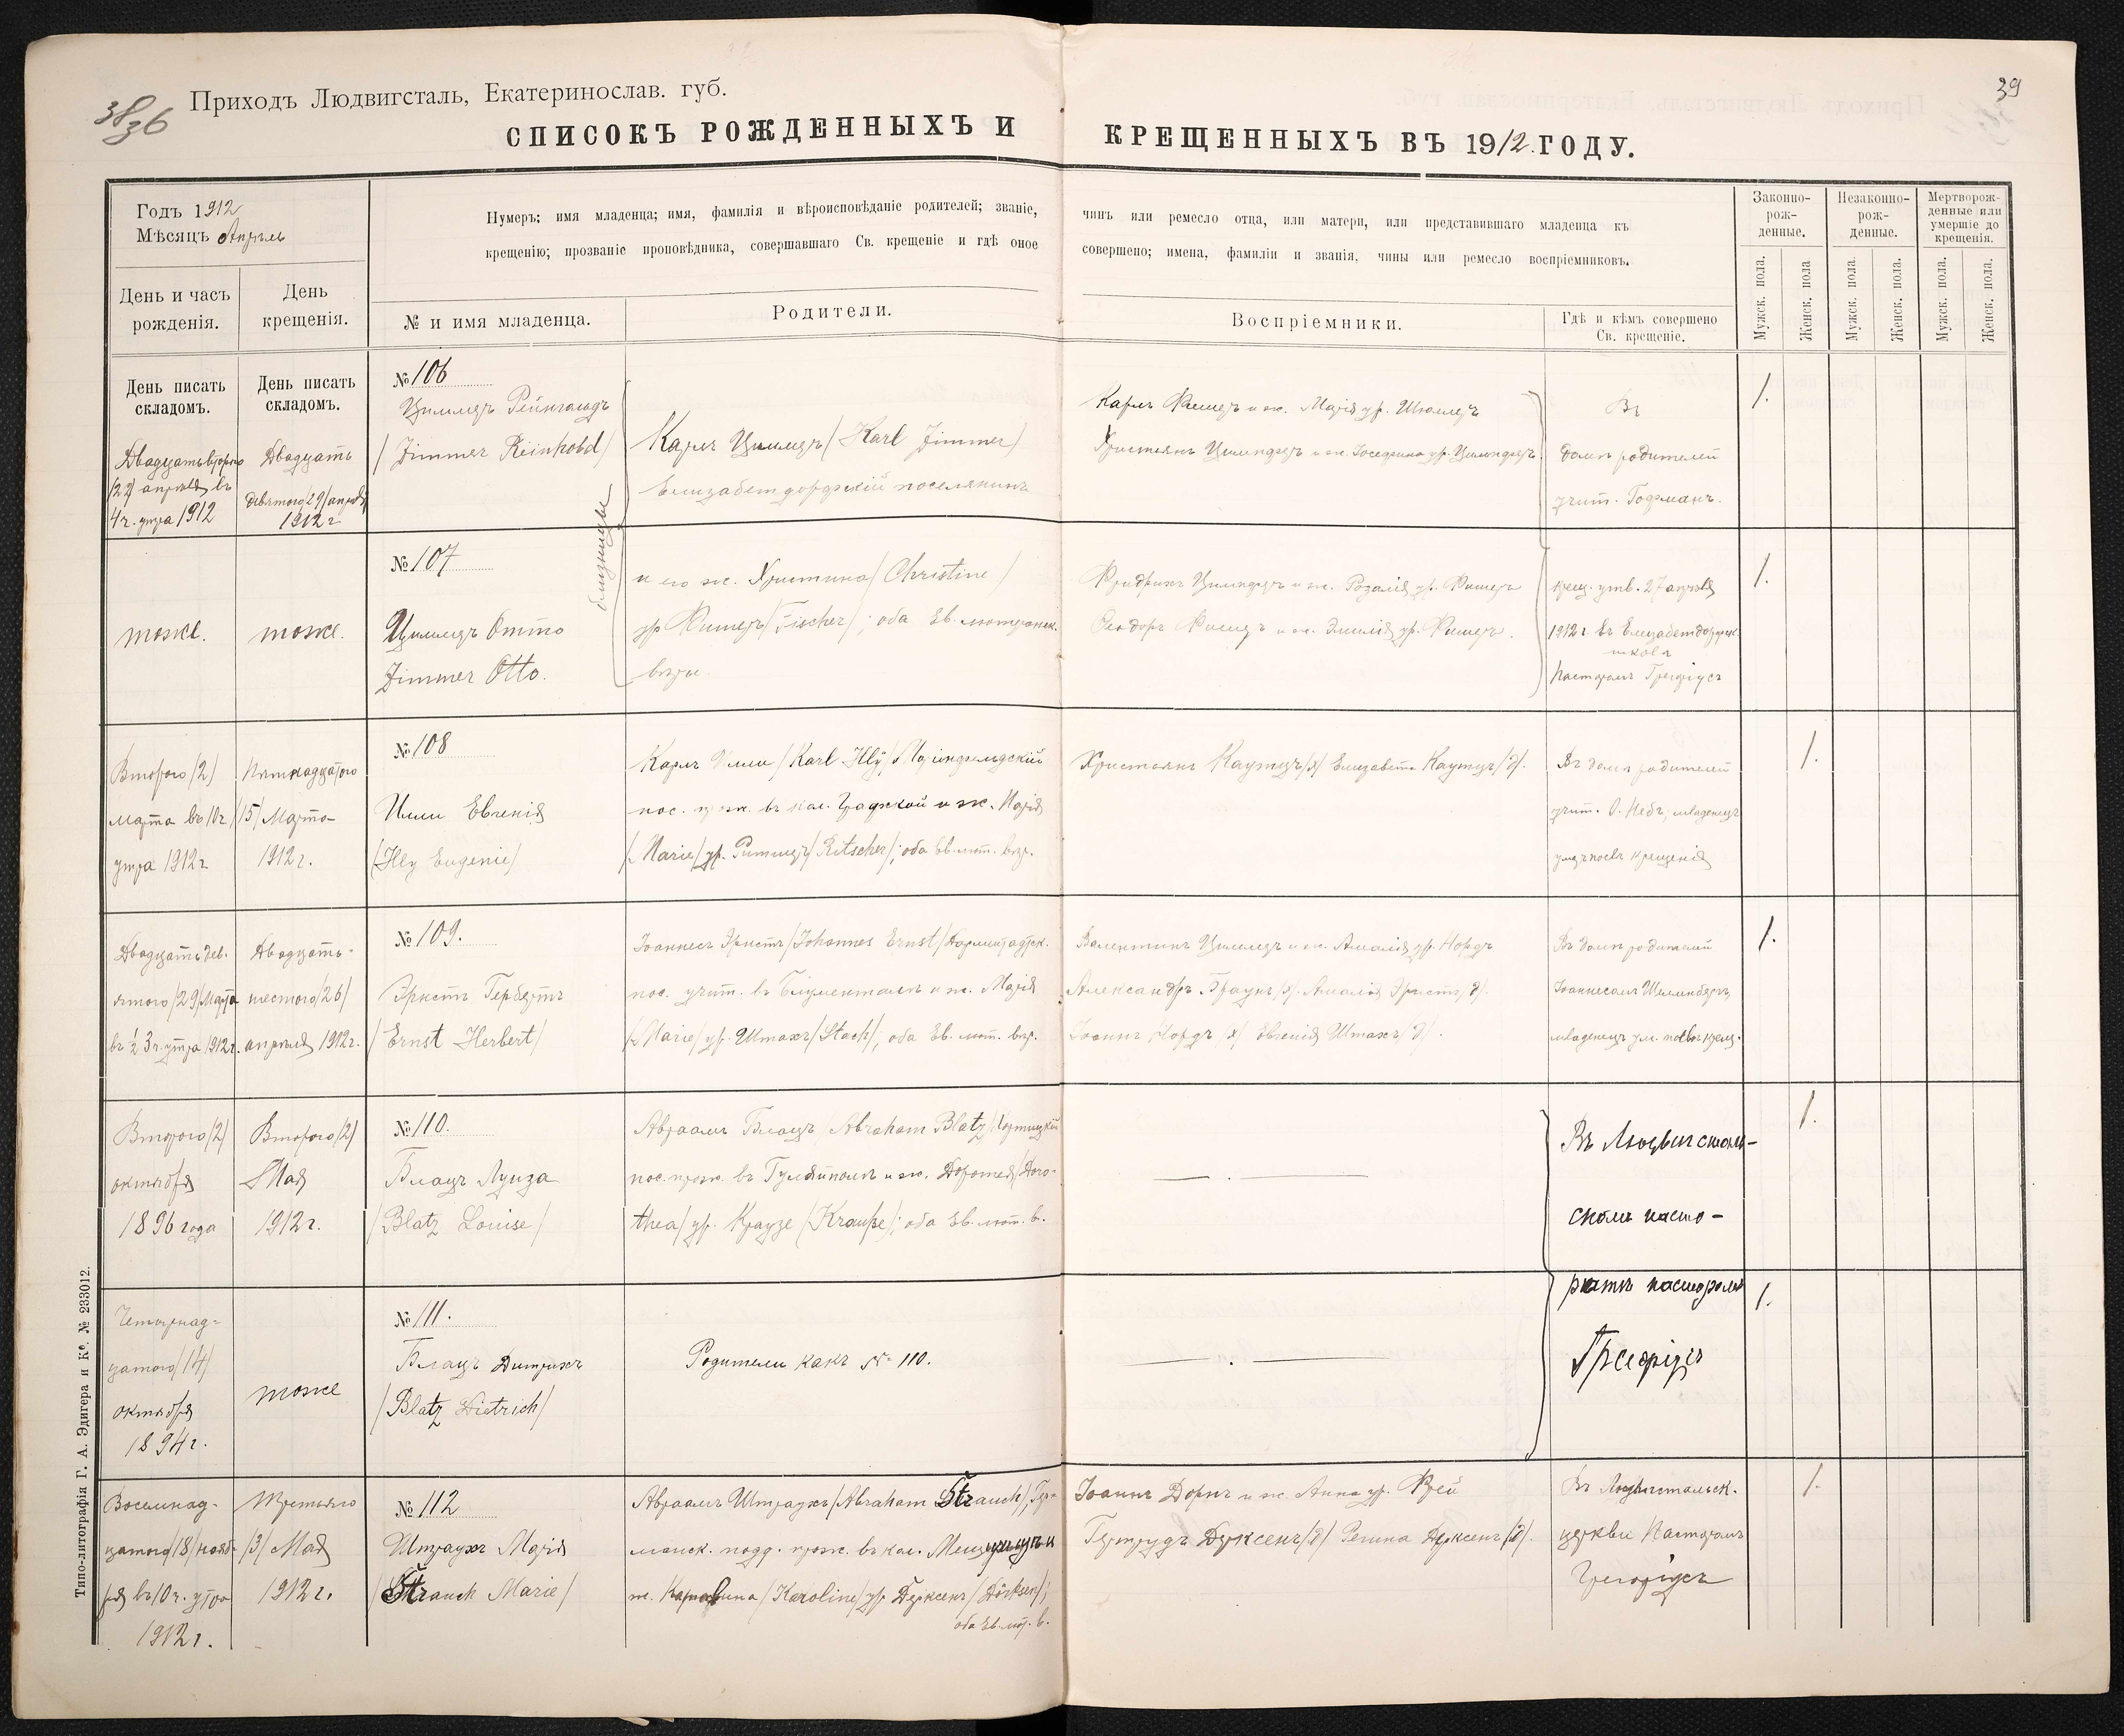 38
36
Приходъ Людвигсталь, Екатеринослав. губ.
39
СПИСОКЪ РОЖДЕННЫХЪ И КРЕЩЕННЫХЪ ВЪ 1912 ГОДУ.
Годъ 1912
Мѣсяцъ Апрѣль
Нумеръ; имя младенца; имя, фамилія и вѣроисповѣданіе родителей; званіе, чинъ или ремесло отца, или матери, или представившаго младенца къ
крещенію; прозваніе проповѣдника, совершавшаго Св. крещеніе и гдѣ оное совершено; имена, фамиліи и званія, чины или ремесло воспріемниковъ.
Законно-
рож-
денные.
Незаконно-
рож-
денные.
Мертворож-
денные или
умершіе до
крещенія.
День и часъ
рожденія.
День
крещенія.
№ и имя младенца.
Родители.
Воспріемники.
Гдѣ и кѣмъ совершено
Св. крещеніе.
Мужск. пола.
Женск. пола
Мужск. пола.
Женск. пола.
Мужск. пола.
Женск. пола.
День писать
складомъ.
День писать
складомъ.
Двадцать второго
/22/ апрѣля въ
4 ч. утра 1912
Двадцать
девятого/29/апрѣля
1912 г
№ 106
Циммеръ Рейнгольдъ
/Zimmer Reinhold/
близнецы
Карлъ Циммеръ /Karl Zimmer/
Елизабетдорфскій поселянинъ
Карлъ Фишеръ и ж. Марія ур.
Христіанъ
Въ
домѣ родителей
учит. Гофманъ.
1.
тоже.
тоже.
№ 107
Циммеръ Отто
Zimmer Otto.
и его ж. Христина /Christine/
ур. Фишеръ /Fischer/; оба Ев. лютеранск.
вѣры.
Фридрихъ и ж. Розалія ур. Фишеръ
Теодоръ Фишеръ и ж. Эмилія ур. Фишеръ.
крещ. утв. 27 апрѣля
1912 г. въ Елизабетдорфск.
школѣ
Пасторомъ
1.
Второго /2/
марта въ 10 ч
утра 1912 г
Пятнадцатого
/15/ Марта
1912 г.
№ 108
Илли Евгенія
/Illy Eugenie/
Карлъ Илли /Karl Illy/ Маріинфельдскій
пос. прож. въ кол. Графской и ж. Марія
/Marie/ ур. Ритшеръ /Ritscher/; оба Ев. лют. вѣр.
Христіанъ Каутцъ /х/ Елизавета Каутцъ /д/.
Въ домѣ родителей
учит. О. Небъ, младенецъ
умеръ послѣ крещенія
1.
Двадцать дев-
ятого /29/ Марта
въ ½ 3 ч. утра 1912 г.
Двадцать-
шестого /26/
апрѣля 1912 г.
№ 109.
Эрнстъ Гербертъ
/Ernst Herbert/
Іоаннесъ Эрнстъ /Johannes Ernst/ Дармштадтск.
пос. учит. въ Блументалѣ и ж. Марія
/Marie/ ур. Штахъ /Stach/, оба Ев. лют. вѣр.
Валентинъ Циммеръ и ж. Амалія ур. Нордъ
Александръ Браунъ /х/. Амалія Эрнстъ /д/.
Іоаннъ Нордъ /х/ Евгенія Штахъ /д/.
Въ домѣ родителей
Іоаннесомъ Шелленбергъ,
младенецъ ум. послѣ крещ.
1.
Второго /2/
октября
1896 года
Второго /2/
Мая
1912 г.
№ 110.
Блацъ Луиза
/Blatz Louise/
Авраамъ Блацъ /Abraham Blatz/ Хортицкій
пос. прож. въ Гуляйполѣ и ж. Доротея /Doro-
thea/ ур. Краузе /Krauße/; оба Ев. лют. в.
Въ Людвигсталь-
скомъ пасто-
ратѣ пасторомъ
1.
Четырнад-
цатого /14/
октября
1894 г.
тоже
№ 111.
Блацъ Дитрихъ
/Blatz Dietrich/
Родители какъ № 110.
1.
Восемнад-
цатого /18/ нояб-
ря въ 10 ч. утра
1912 г.
Третьяго
/3/ Мая
1912 г.
№ 112
Штраухъ Марія
/Strauch Marie/
Авраамъ Штраухъ /Abraham Strauch/, Гер-
манск. подд. прож. въ кол.
ж. Каролина /Karoline/ ур. Дерксенъ /Dörksen/;
оба Ев. лют. в.
Іоаннъ Дорнъ и ж. Анна ур. Фрей
Гертрудъ Дерксенъ /д/ Регина Дерксенъ /д/.
Въ Людвигстальск.
церкви Пасторомъ
1.
Типо-литографія Г. А. Эдигера и Ко. № 233012.